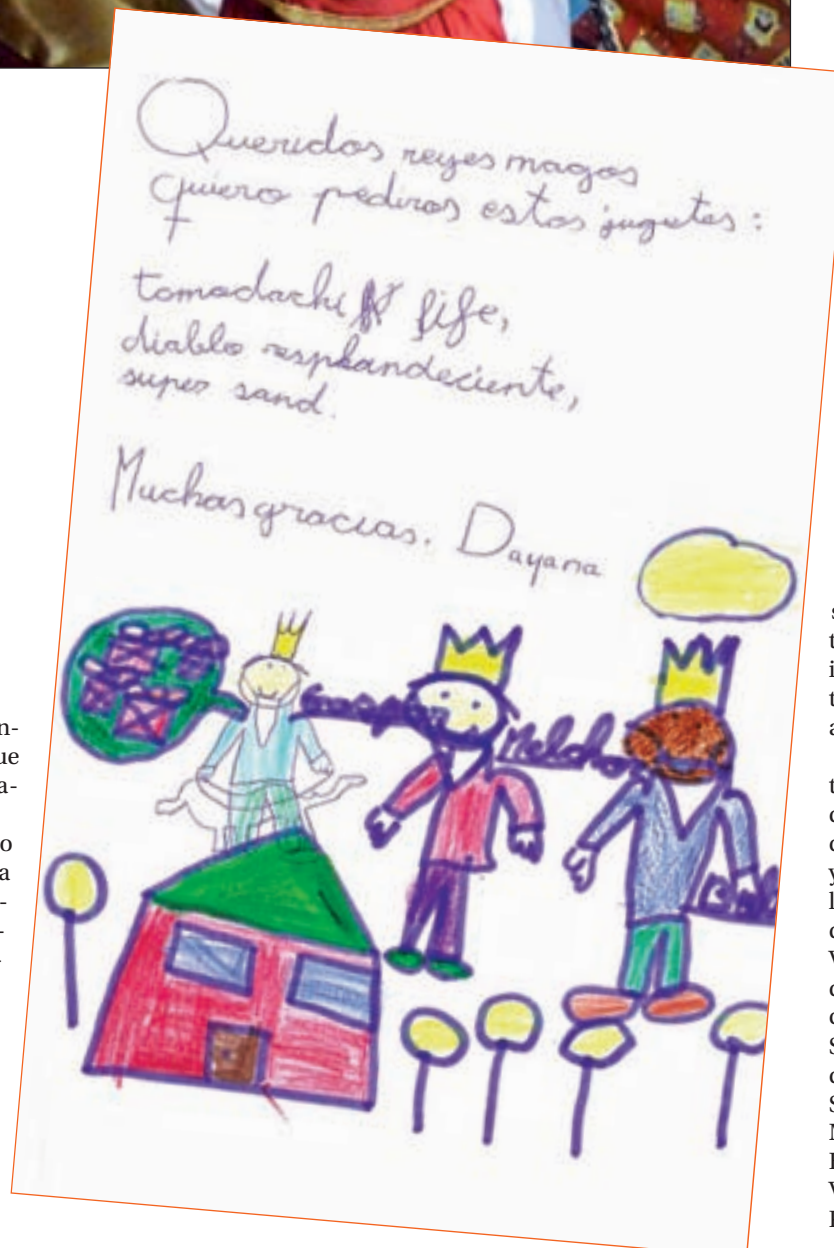 Queridos reyes magos
quiero pediros estos juguetes:
tomodachi life,
diablo resplandeciente,
super sand.
Muchas gracias. Dayana
Gaspar
Melchor
n-
ue
a-
o
a
-
-
s
t
i
t
a
t
c
c
y
l
c
V
c
c
S
c
S
M
I
V
I